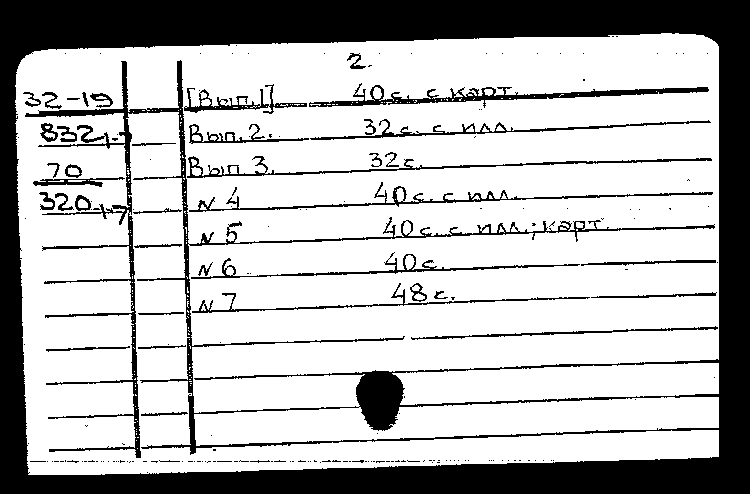 2.
32-19 [Вып.1] 40 с. с карт.
832 1-7 Вып. 2. 32 с. с илл.
70 Вып 3. 32 с.
320 1-7 № 4 40 с. с илл.
№ 5 40 с. с илл.; карт.
№ 6 40 с.
№ 7 48 с.